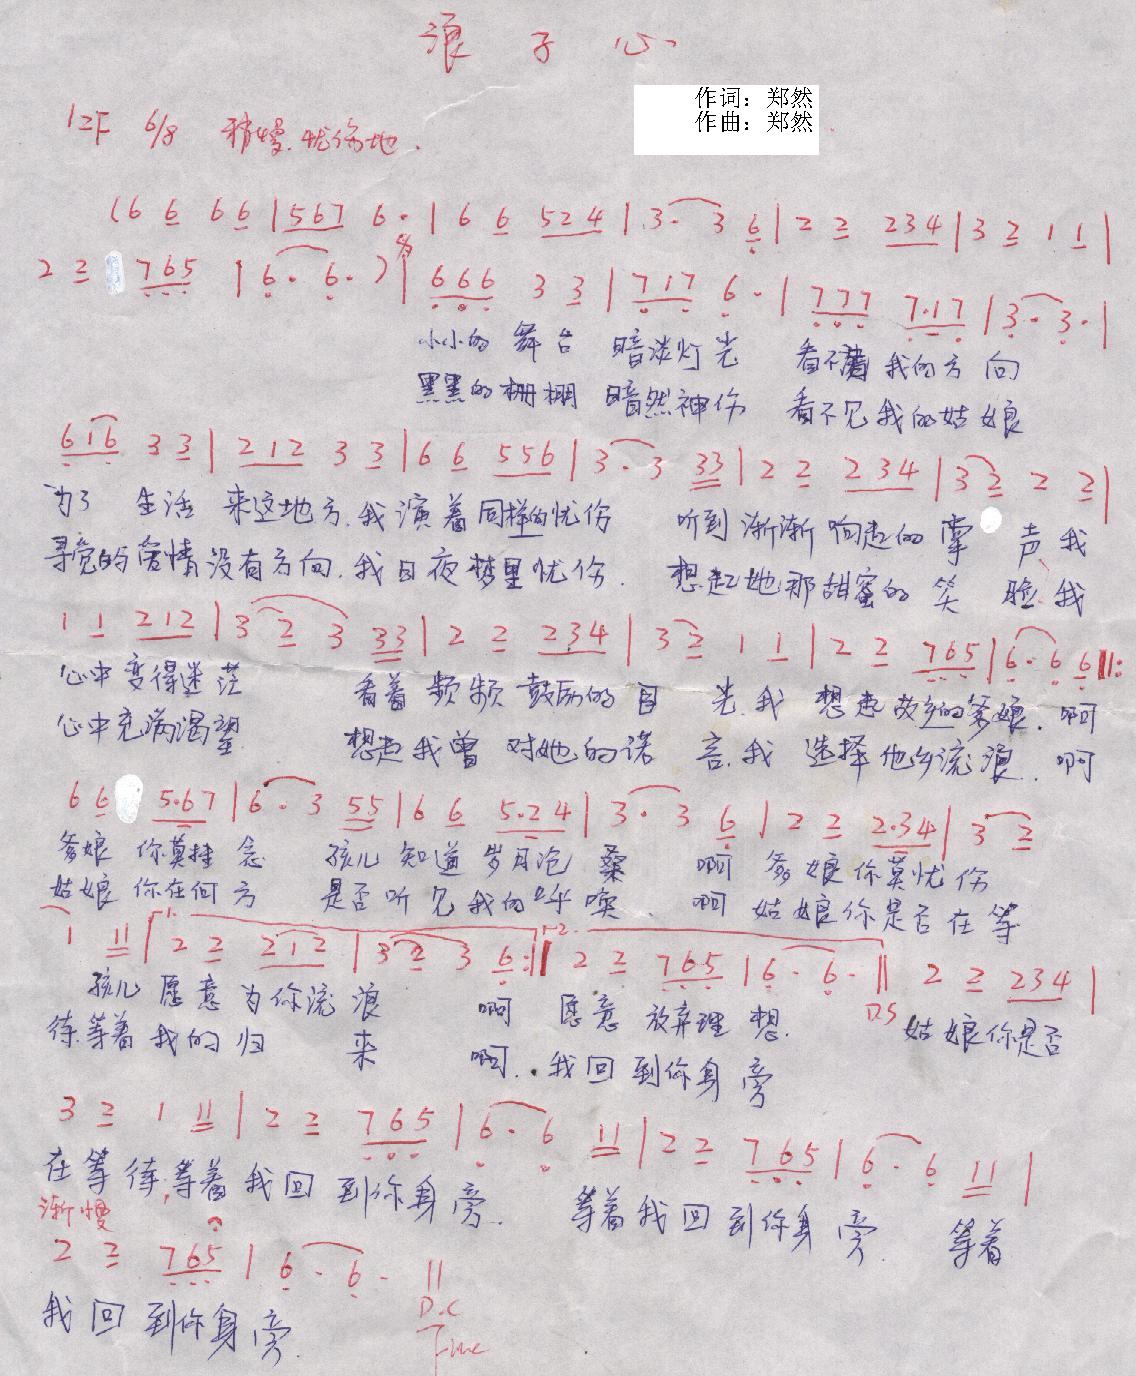 浪子心
作词：郑然
作曲：郑然
1=F 6/8 稍慢.忧伤地.
(6 6 6 6 | 5 6 7 6 · | 6 6 5 2 4 | 3 · 3 6 | 2 2 2 3 4 | 3 2 1 1 |
2 2 7 6 5 | 6 · 6 · ) | 6 6 6 3 3 | 7 1 7 6 · | 7 7 7 7 · 1 7 | 3 · 3 · |
小小的舞台 暗淡灯光 看不清我的方向
黑黑的栅棚 暗然神伤 看不见我的姑娘
6 1 6 3 3 | 2 1 2 3 3 | 6 6 5 5 6 | 3 · 3 3 3 | 2 2 2 3 4 | 3 2 2 2 |
为了 生活 来这地方.我演着同样的忧伤 听到渐渐响起的掌 声我
寻觅的爱情没有方向.我日夜梦里忧伤. 想起她那甜蜜的笑 脸我
1 1 2 1 2 | 3 2 3 3 3 | 2 2 2 3 4 | 3 2 1 1 | 2 2 7 6 5 | 6 · 6 6 ‖:
心中变得迷茫 看着频频鼓励的目 光.我 想起故乡的爹娘. 啊
心中充满渴望 想起我曾对她的诺 言.我 选择他乡流浪. 啊
6 6 5 · 6 7 | 6 · 3 5 5 | 6 6 5 · 2 4 | 3 · 3 6 | 2 2 2 · 3 4 | 3 2
爹娘 你莫挂念 孩儿知道岁月沧桑 啊 爹娘你莫忧伤
姑娘 你在何方 是否听见我的呼唤. 啊 姑娘你是否在等
1 1 1 | 1. 2 2 2 1 2 | 3 2 3 6 :‖ 2. 2 2 7 6 5 | 6 · 6 · ‖ 2 2 2 3 4 |
孩儿愿意为你流浪 啊 愿意放弃理想. D.S 姑娘你是否
待.等着我的归 来 啊. 我回到你身旁
3 2 1 1 1 | 2 2 7 6 5 | 6 · 6 1 1 | 2 2 7 6 5 | 6 · 6 1 1 |
在等待,等着我回到你身旁. 等着我回到你身旁 等着
渐慢
2 2 7 6 5 | 6 · 6 · ‖
我回到你身旁.
D.C
Fine